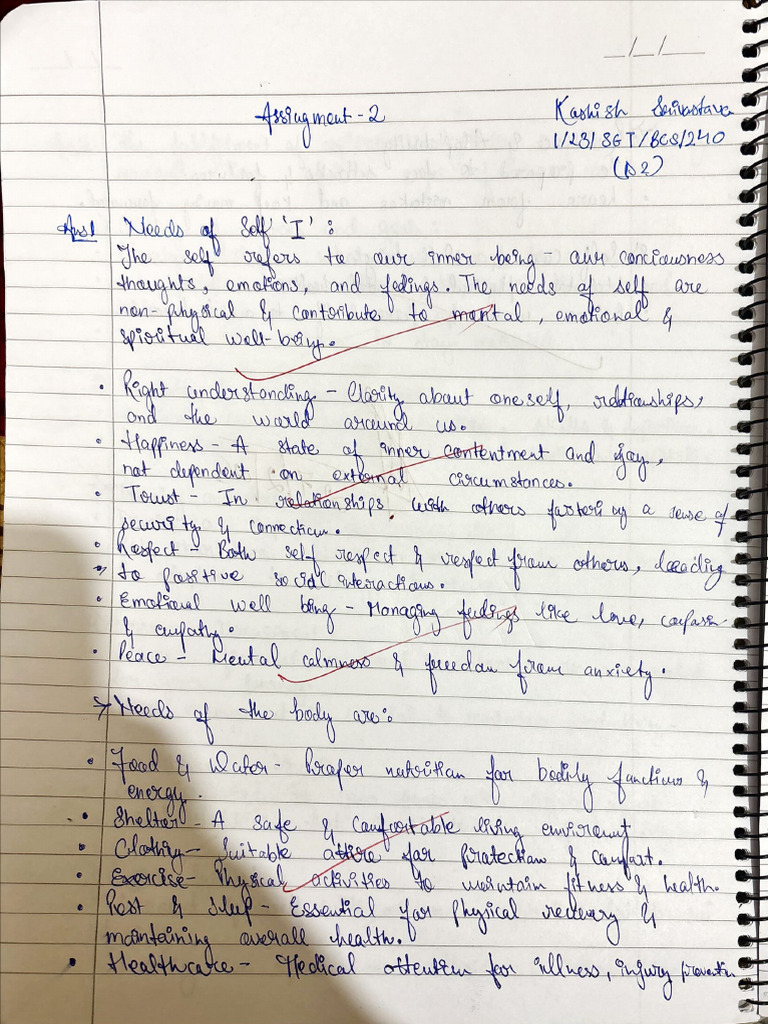 __/__/____
Assingment - 2
Kashish Srivastava
1/23/SGT/BCS/240
(D2)
Ans1 Needs of Self 'I' :
The self refers to our inner being - our conciousness
thoughts, emotions, and feelings. The needs of self are
non-physical & contribute to mental, emotional &
spiritual well-being.
• Right understanding - Clarity about oneself, relationships,
and the world around us.
• Happiness - A state of inner contentment and joy,
not dependent on external circumstances.
• Trust - In relationships with others fostering a sense of
security & connection.
• Respect - Both self respect & respect from others, leading
to positive social interactions.
• Emotional well being - Managing feelings like love,
& empathy.
• Peace - Mental calmness & freedom from anxiety.
→ Needs of the body are:
• Food & Water - Proper nutrition for bodily functions &
energy.
• Shelter - A safe & comfortable living
• Clothing - Suitable attire for protection & comfort.
• Exercise - Physical activities to maintain fitness & health.
• Rest & Sleep - Essential for physical recovery &
maintaining overall health.
• Healthcare - Medical attention for illness, injury prevention